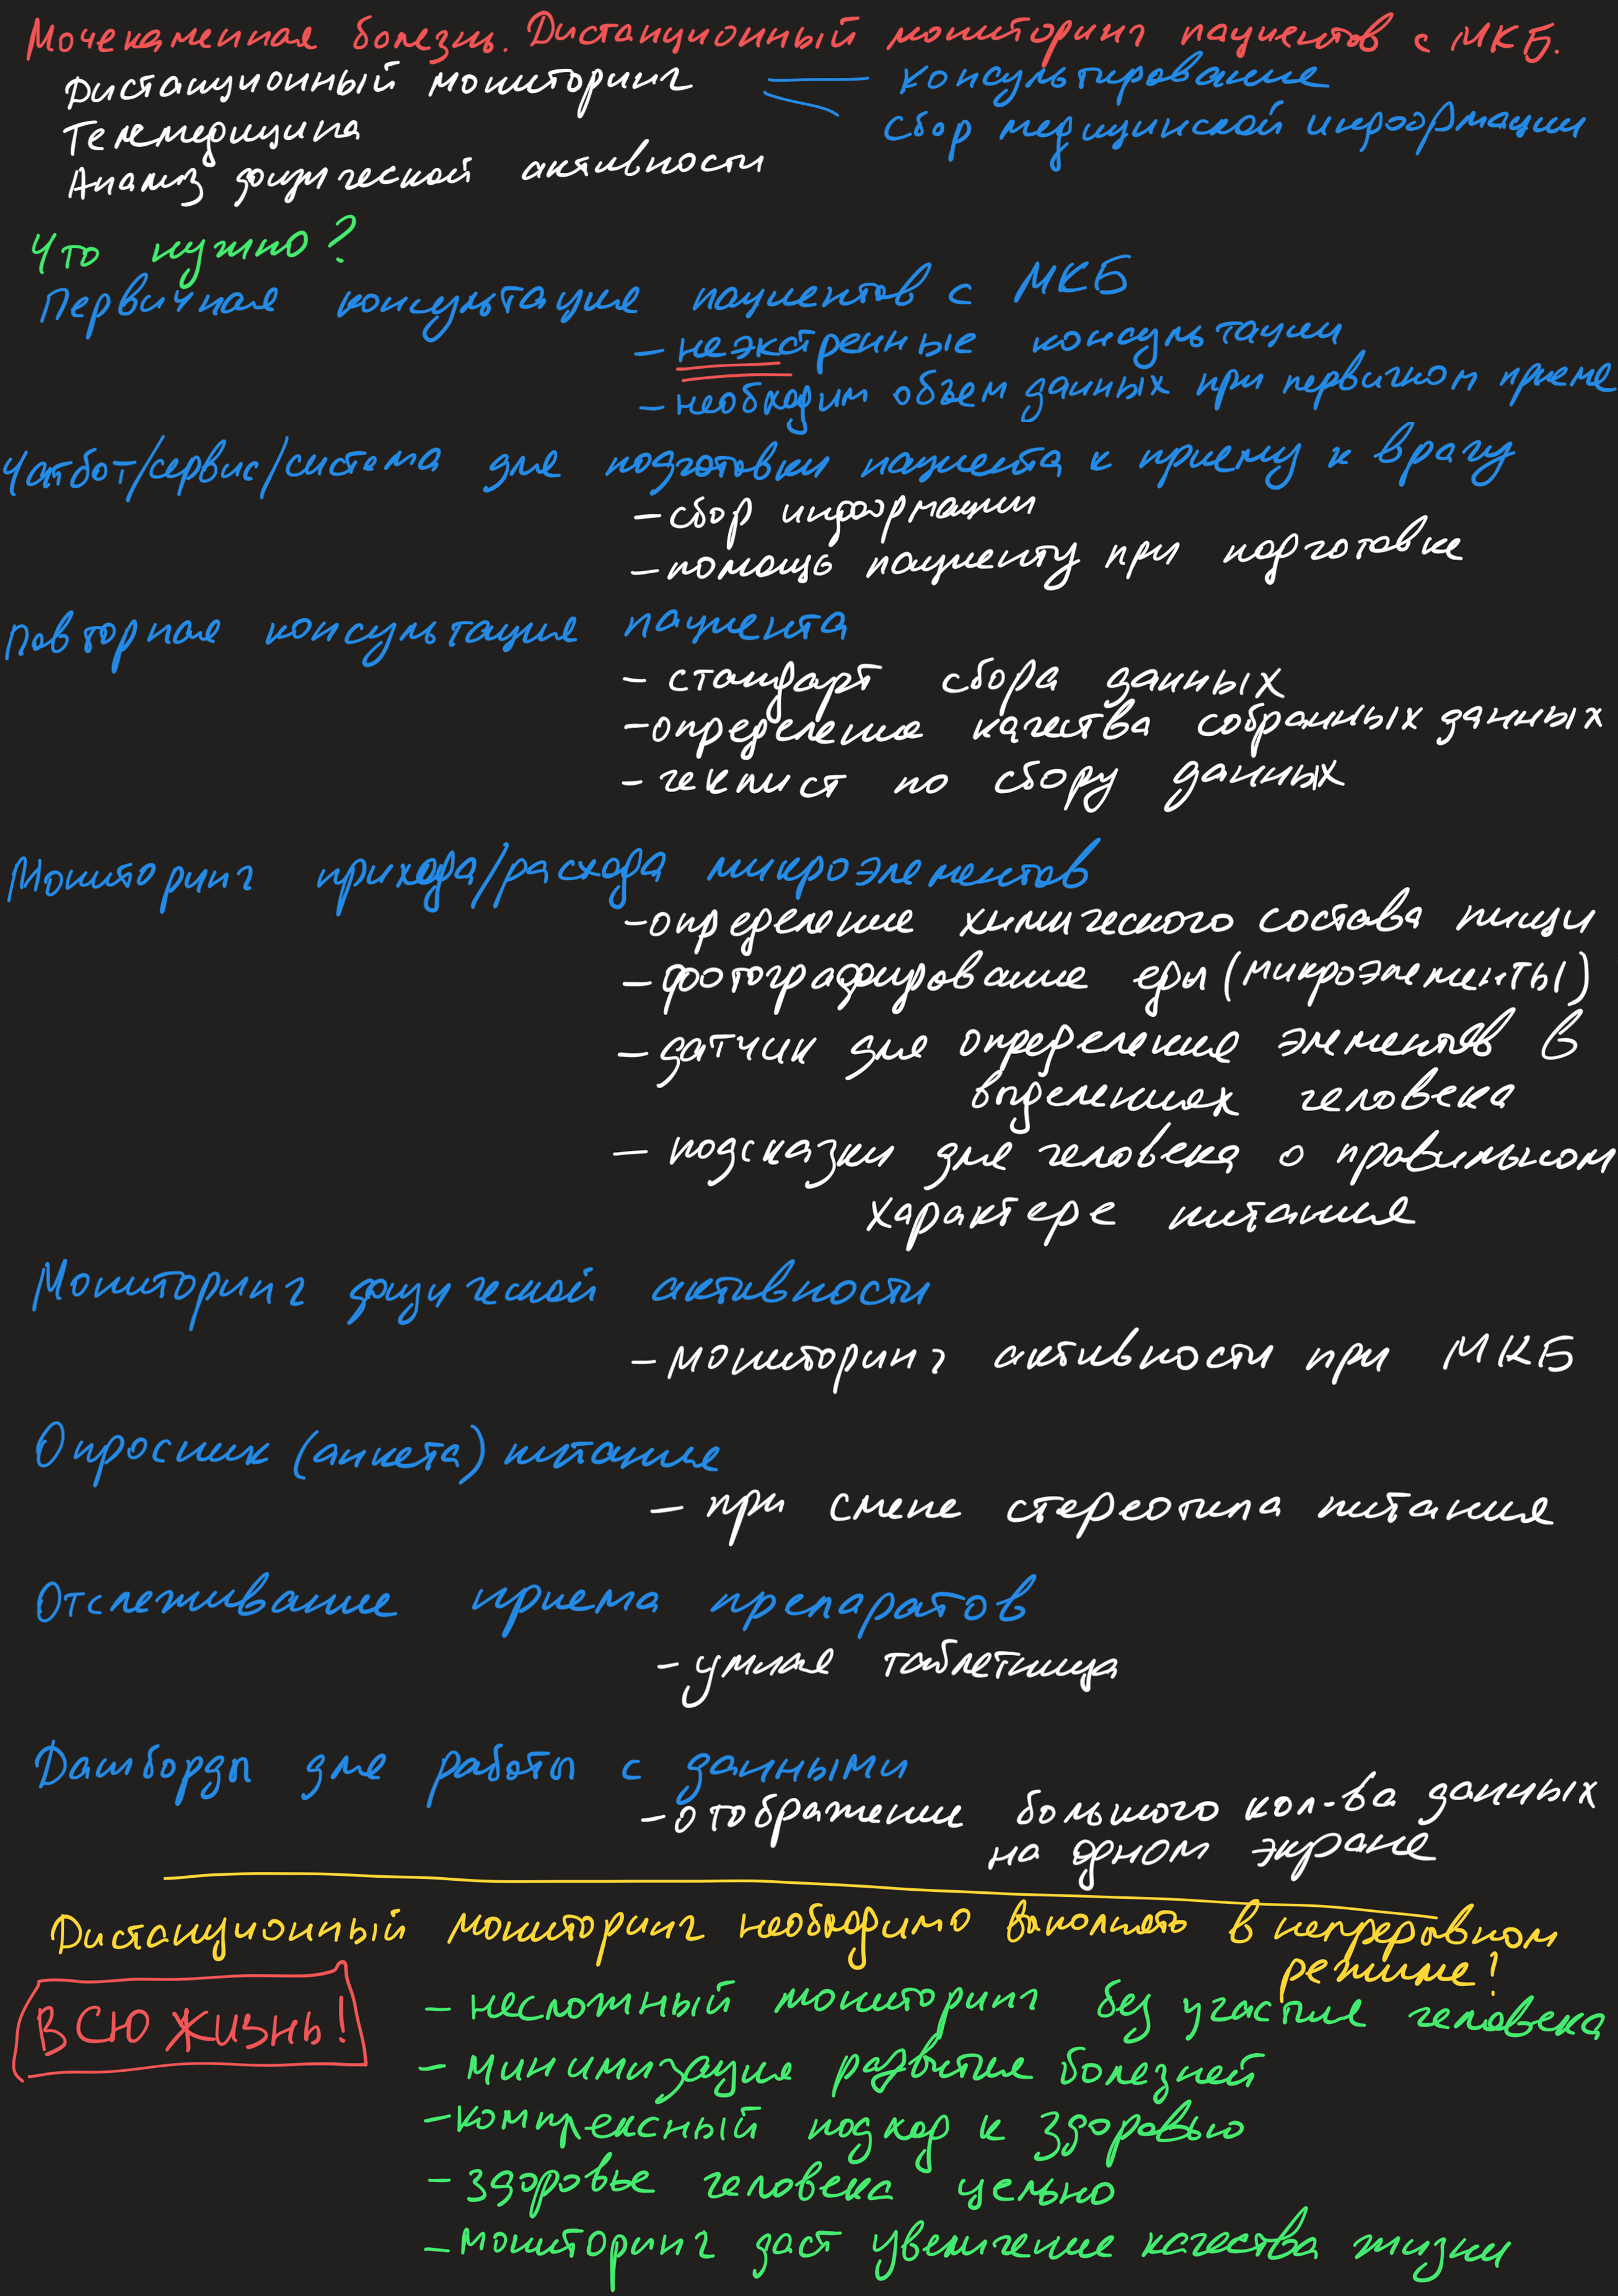 Мочекаменная болезнь. Дистанционный мониторинг пациентов с МКБ.
Дистанционный мониторинг
консультирование
Телемедицина
сбор медицинской информации
Анализ физической активности
Что нужно?
Первичная консультация пациентов с МКБ
- неэкстренные консультации
- необходим объем данных при первичном приеме
Чатбот/сервис/система для подготовки пациента к приему к врачу
- сбор информации
- помощь пациенту при подготовке
Повторная консультация пациента
- стандарт сбора данных
- определение качества собранных данных
- чеклист по сбору данных
Мониторинг прихода/расхода микроэлементов
- определение химического состава пищи
- фотографирование еды (микроэлементы)
- датчик для определения элементов в
выделениях человека
- подсказки для человека о правильном
характере питания
Мониторинг физической активности
- мониторинг активности при МКБ
Опросник (анкета) питания
- при смене стереотипа питания
Отслеживание приема препаратов
- умная таблетница
Дашборды для работы с данными
- отображение большого кол-ва данных
на одном экране
Дистанционный мониторинг необходимо выполнять в непрерывном
режиме!
ВСЮ ЖИЗНЬ!
- несложный мониторинг без участия человека
- минимизация развития болезней
- комплексный подход к здоровью
- здоровье человека цельно
- мониторинг даст увеличение качества жизни